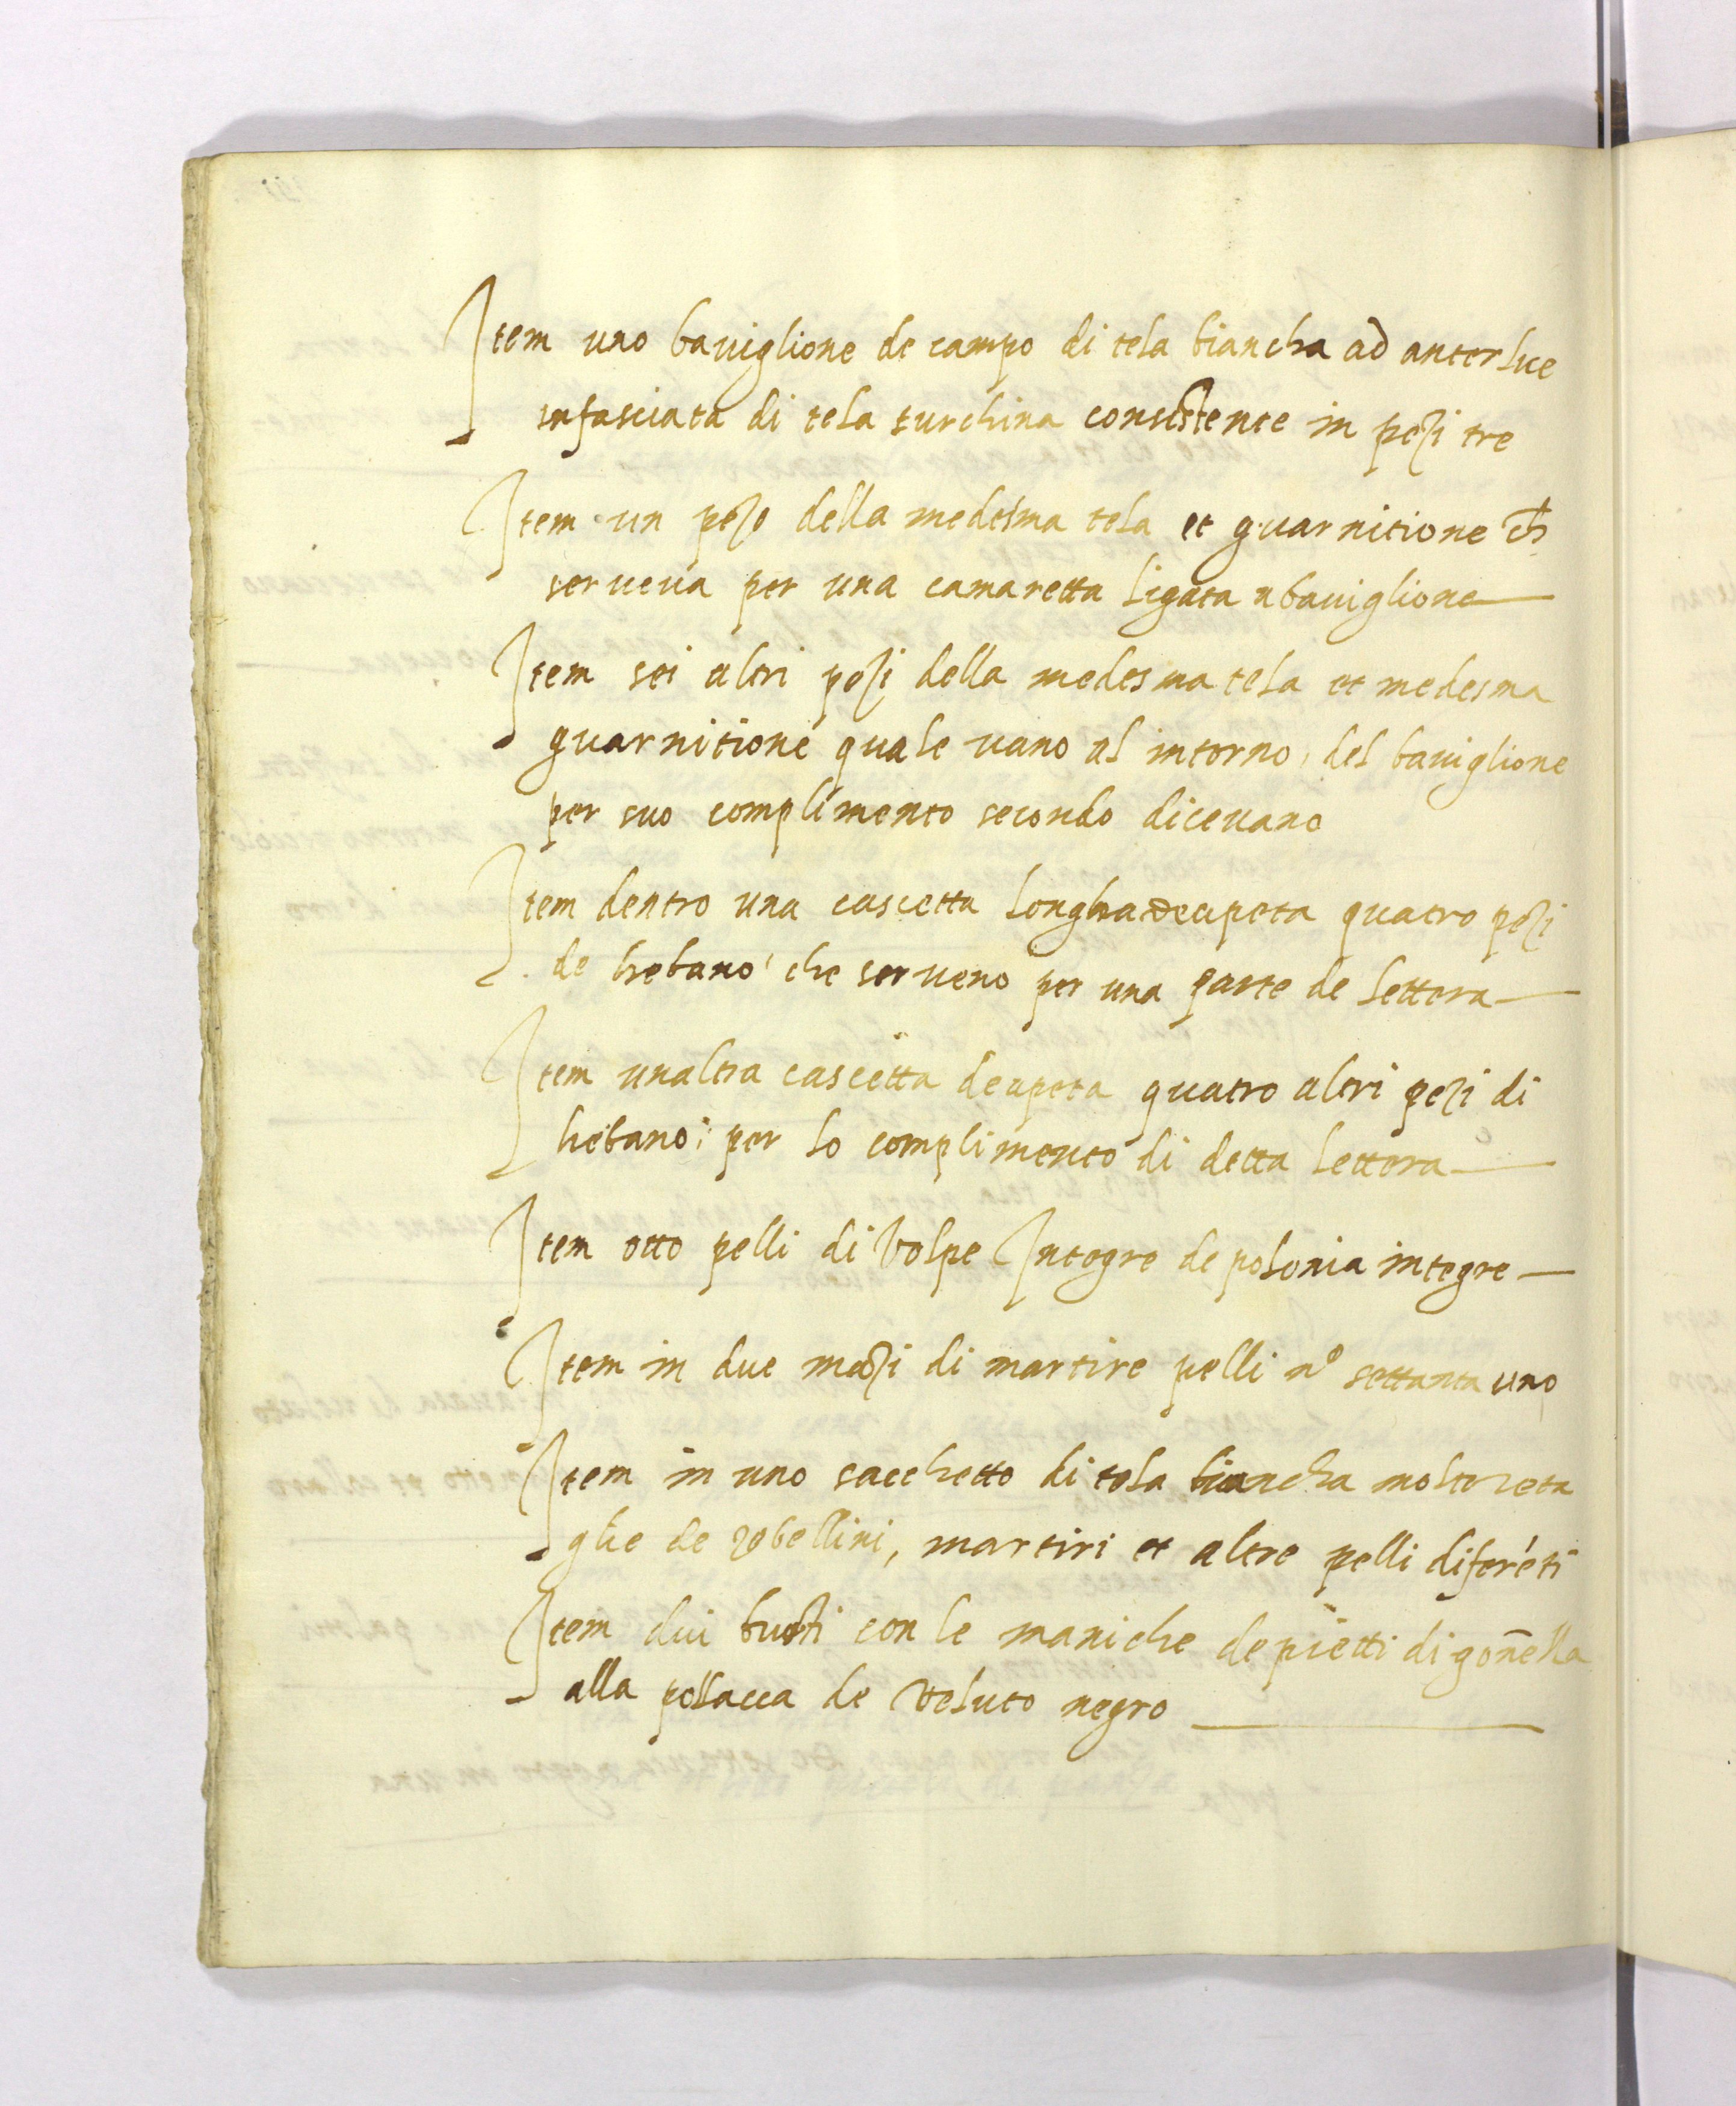 Item uno baviglione de campo di tela biancha ad anterluce
infasciata di tela turchina consistente in pezi tre
Item un pezo della medesma tela et guarnitione ch
serveva per una camaretta ligata a baviglione
Item sei altri pezi della medesma tela et medesma
guarnitione quale vano al intorno, del baviglione
per suo complimento secondo dicevano
Item dentro una cascetta longha de apeta quatro pezi
de hebano che serveno per una parte de lettera
Item unaltra cascetta de apeta quatro altri pezi di
hebano: per lo complimento di detta lettera
Item otto pelli di Volpe Integre de polonia integre
Item in due mazi di martire pelli nº settanta uno
Item in uno sacchetto di tela biancha molte reta
glie de zebellini, martiri et altre pelli diferéti
Item dui busti con le maniche de pietti di gon̄ella
alla pollacca de veluto negro